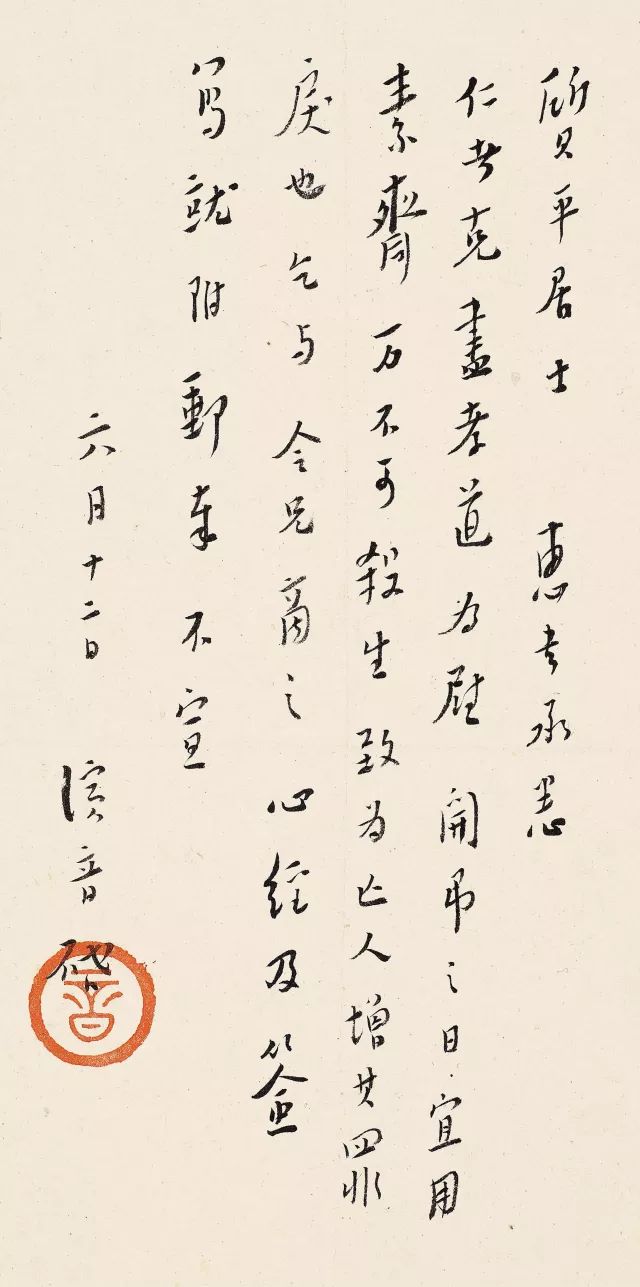 質平居士 惠書承悉
仁者克盡孝道为慰 開弔之日宜用
素齋万不可殺生致为亡人增其罪
戾也乞与 令兄商之 心經及签
写就附郵奉 不宣
六月十二日 演音 啓
音